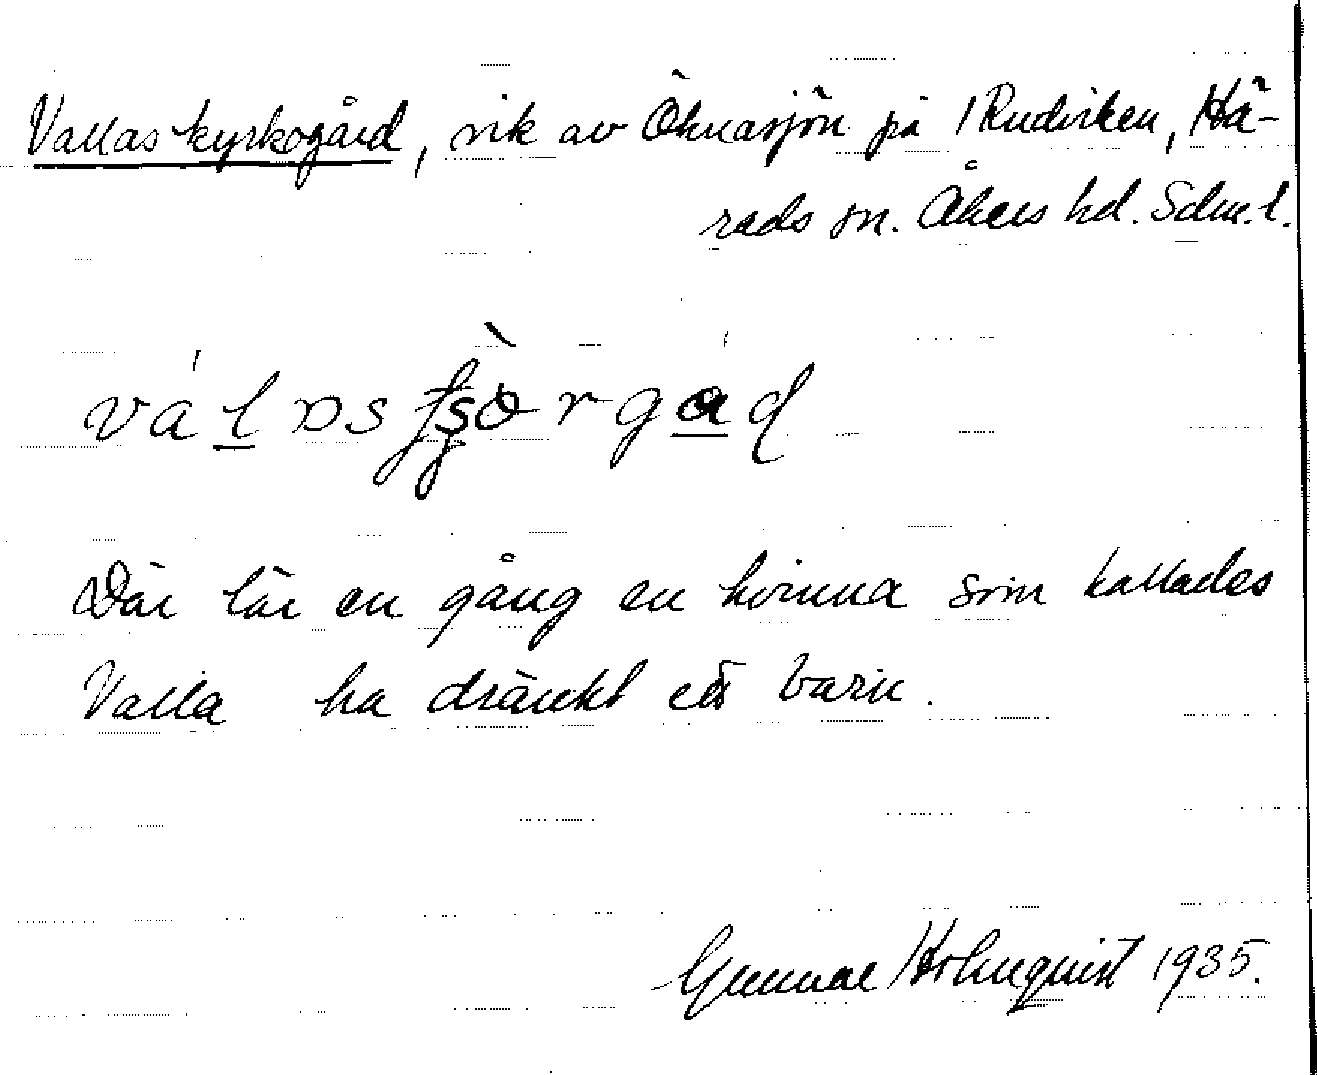 Vallas kyrkogård, vik av Öknasjön på Rudviken, Hä-
rads sn. Åkers hd. Sdm.l.
Där lär en gång en kvinna som kallades
Valla ha dränkt ett barn.
Gunnar Holmquist 1935.